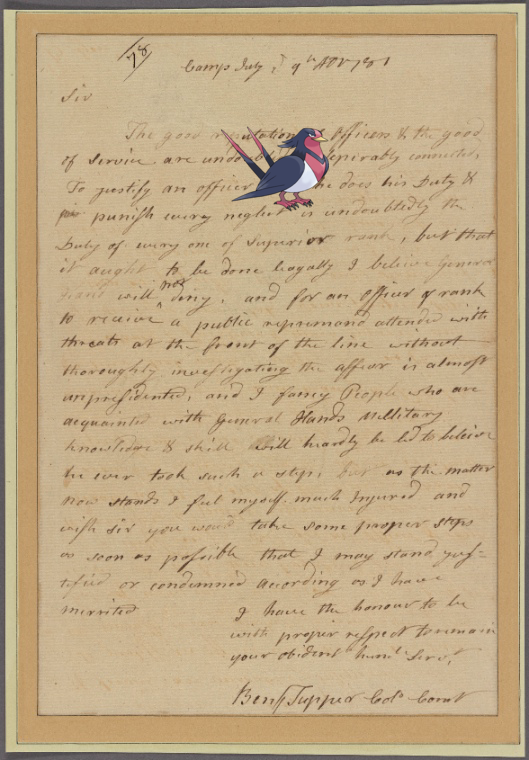 78
Camp July 9th 1781
Sir
The good reputation Officers & the good
of Service are connected,
To justify an officer he does his Duty &
punish every neglect is undoubtedly the
Duty of every one of Superior rank, but that
it aught to be done leagally I believe General
will not deny, and for an officer of rank
to receive a publick reprimand attended with
threats at the front of the line without
thoroughly investigating the affair is almost
unpresidented, and I fancy People who are
acquainted with General Hands Millitary
knowledge & skill will heardly be led to beleive
he ever took such a step, but as the matter
now stands I feel myself much Injured and
wish sir you would take some proper steps
as soon as possible that I may stand jus-
tified or condemned acording as I have
merrited
I have the honour to be
with proper respect to remain
your obident humle Servt,
Benj Tupper Colo Comt